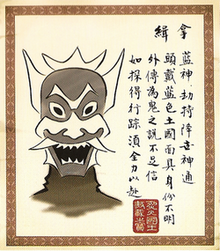 緝拿
藍神劫持降世神通
頭戴藍色土國面具身份不明
外傳為鬼之說不足信
如探得行踪須全力以赴